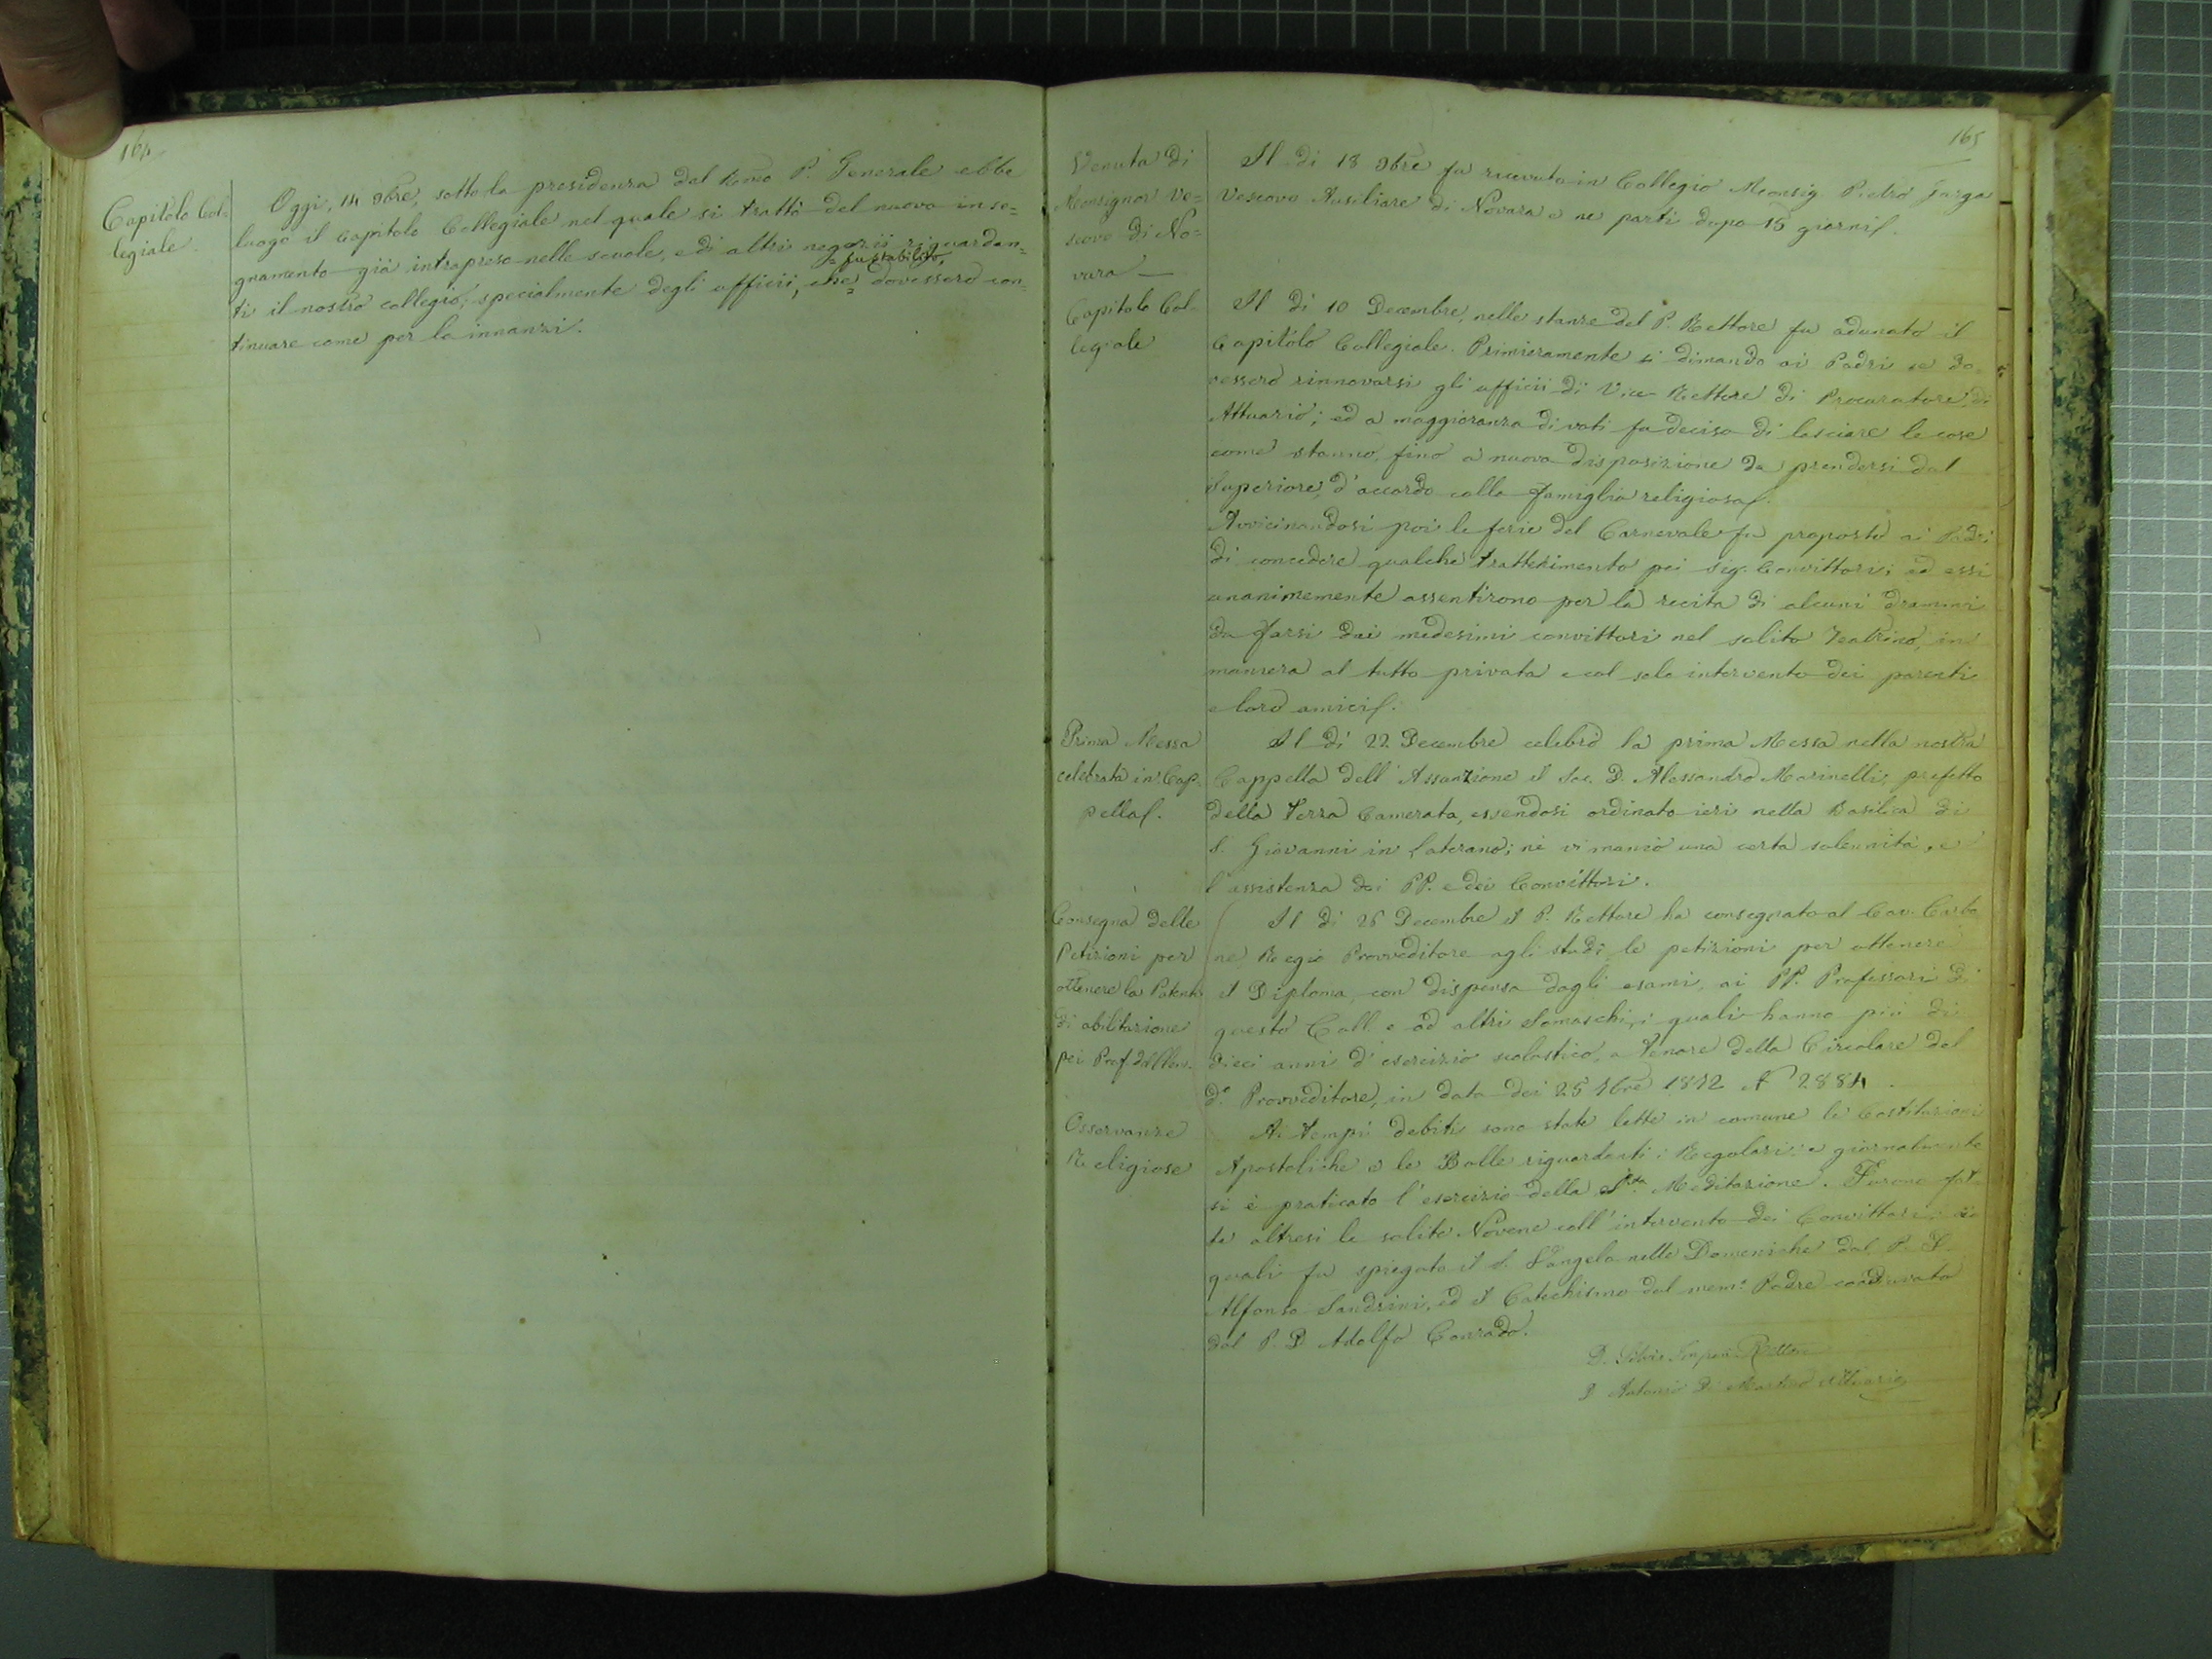 164
Capitolo Col=
legiale.
Oggi, 14 9bre, sotto la presidenza del Rmo P. Generale ebbe
luogo il Capitolo Collegiale nel quale si trattò del nuovo inse=
gnamento già intrapreso nelle scuole, e di altri negozii riguardan=
= fu stabilito,
ti il nostro collegio; specialmente degli ufficii, che = dovessero con=
tinuare come per lo innanzi.
165
Venuta di
Monsignor Ve=
scovo di No=
vara —
Il dì 18 9bre fu ricevuto in Collegio Monsig. Pietro Garga
Vescovo Ausiliare di Novara e ne partì dopo 15 giorni.
Capitolo Col-
legiale
Il dì 10 Decembre, nelle stanze del P. Rettore fu adunato il
Capitolo Collegiale. Primieramente si dimandò ai Padri se do-
vessero rinnovarsi gli ufficii di Vice Rettore di Procuratore, di
Attuario; ed a maggioranza di voti fu deciso di lasciare le cose
come stanno, fino a nuova disposizione da prendersi dal
Superiore, d'accordo colla famiglia religiosa.
Avvicinandosi poi le ferie del Carnevale fu proposto ai Padri
di concedere qualche trattenimento pei Sig. Convittori; ed essi
unanimemente assentirono per la recita di alcuni drammi
da farsi dai medesimi convittori nel solito Teatrino, in
maniera al tutto privata e col solo intervento dei parenti
e loro amici.
Prima Messa
celebrata in Cap-
pella.
Il dì 22 Decembre celebrò la prima Messa nella nostra
Cappella dell'Assunzione il Sac. D. Alessandro Marinelli, prefetto
della Terza Camerata, essendosi ordinato ieri nella Basilica di
S. Giovanni in Laterano; nè vi mancò una certa solennità, e
l'assistenza dei PP. e dei Convittori.
Consegna delle
Petizioni per
ottenere la Patente
di abilitazione
pei Prof.
Il dì 26 Decembre il P. Rettore ha consegnato al Cav. Carbo
ne Regio Provveditore agli studi, le petizioni per ottenere
il Diploma, con dispensa dagli esami, ai PP. Professori di
questo Coll. e ad altri Somaschi, i quali hanno più di
dieci anni d'esercizio scolastico, a tenore della Circolare del
d.o Provveditore, in data dei 25 9bre 1872 N 2884.
Osservanze
Religiose
Ai tempi debiti sono state lette in comune le Costituzioni
Apostoliche e le Bolle riguardanti i Regolari; e giornalmente
si è praticato l'esercizio della Sta Meditazione. Furono fat-
te altresì le solite Novene coll'intervento dei Convittori, ai
quali fu spiegato il S. Vangelo nelle Domeniche dal P. D.
Alfonso Sandrini, ed il Catechismo dal mem.o Padre coadiuvato
dal P. D. Adolfo Conrado.
D. Silvio Imperi Rettore
D. Antonio Di Martino Attuario